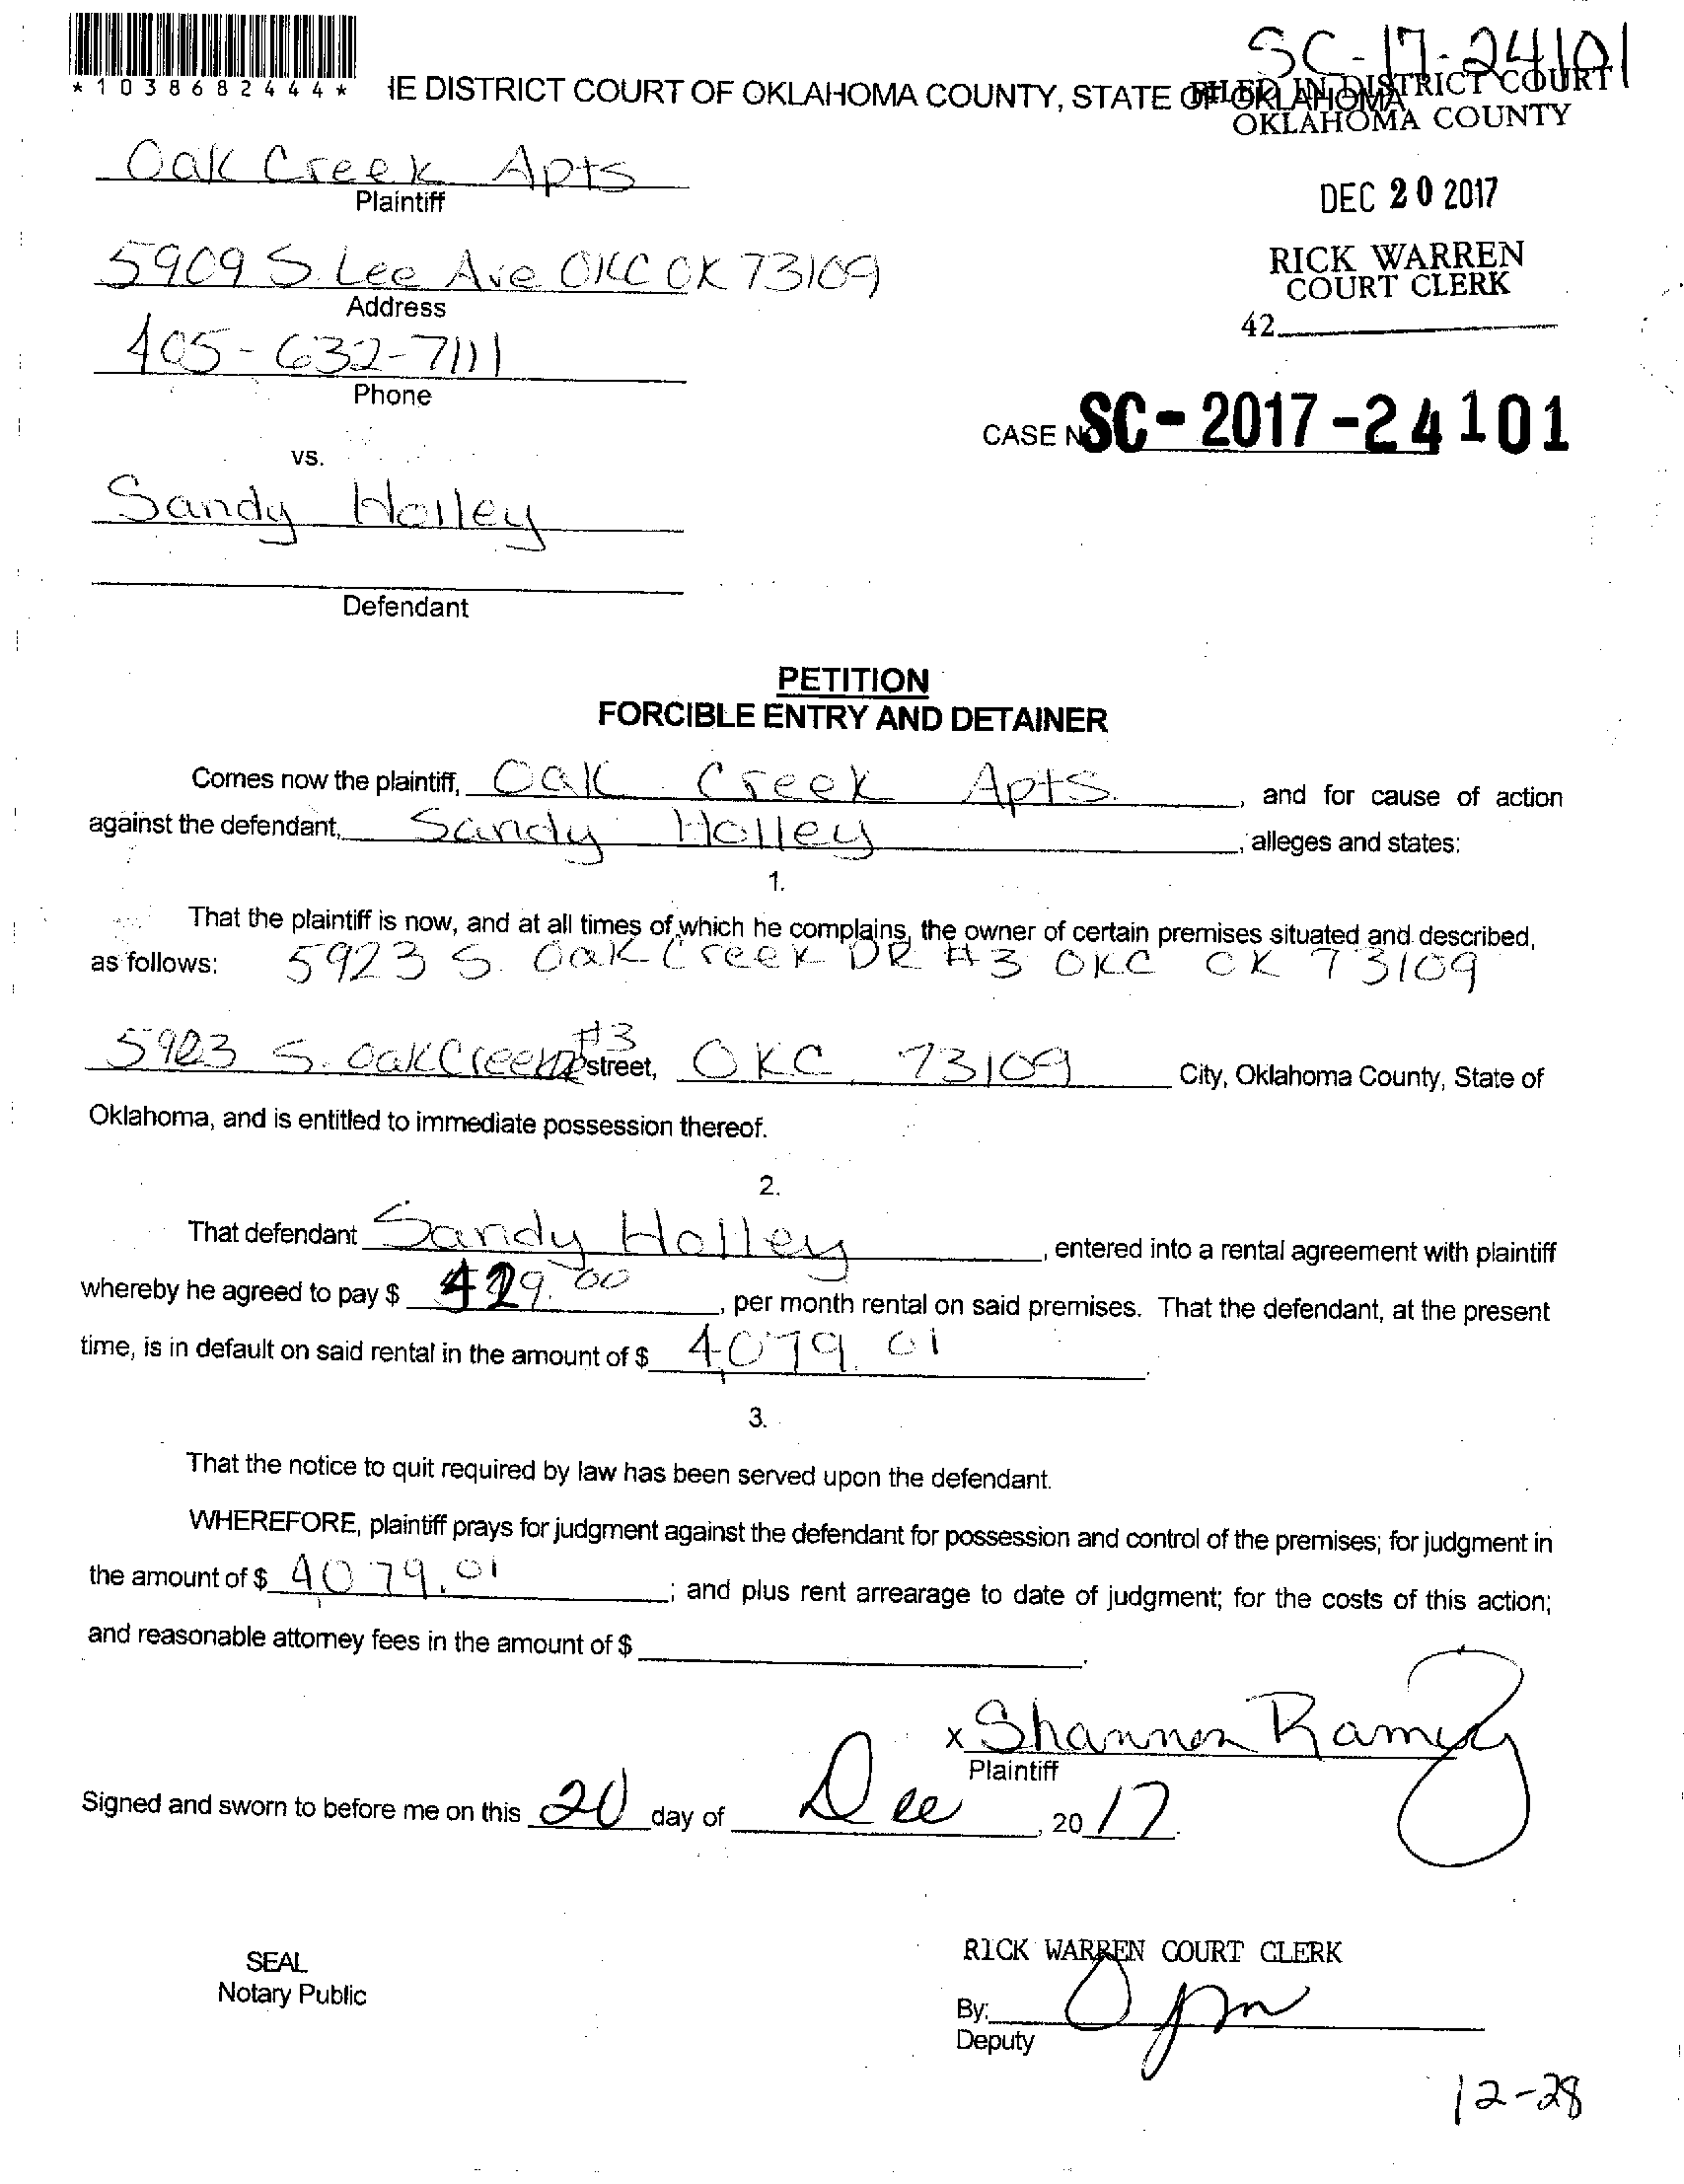 SC-17-24101
*1038682444*
IE DISTRICT COURT OF OKLAHOMA COUNTY, STATE OF OKLAHOMA
FILED IN DISTRICT COURT
OKLAHOMA COUNTY
Oak Creek Apts
Plaintiff
DEC 20 2017
5909 S. Lee Ave OKC OK 73109
Address
RICK WARREN
COURT CLERK
42
405-632-7111
Phone
CASE No SC-2017-24101
vs.
Sandy Holley
Defendant
PETITION
FORCIBLE ENTRY AND DETAINER
Comes now the plaintiff, Oak Creek Apts. , and for cause of action
against the defendant, Sandy Holley , alleges and states:
1.
That the plaintiff is now, and at all times of which he complains, the owner of certain premises situated and described,
as follows: 5923 S. Oak Creek DR #3 OKC OK 73109
5923 S. Oak Creek #3 street, OKC 73109 City, Oklahoma County, State of
Oklahoma, and is entitled to immediate possession thereof.
2.
That defendant Sandy Holley , entered into a rental agreement with plaintiff
whereby he agreed to pay $ 429.00 , per month rental on said premises. That the defendant, at the present
time, is in default on said rental in the amount of $ 4079.01 .
3.
That the notice to quit required by law has been served upon the defendant.
WHEREFORE, plaintiff prays for judgment against the defendant for possession and control of the premises; for judgment in
the amount of $ 4079.01 ; and plus rent arrearage to date of judgment; for the costs of this action;
and reasonable attorney fees in the amount of $ .
x Shannon Ramey
Plaintiff
Signed and sworn to before me on this 20 day of Dec , 2017.
SEAL
Notary Public
RICK WARREN COURT CLERK
By:
Deputy
12-28